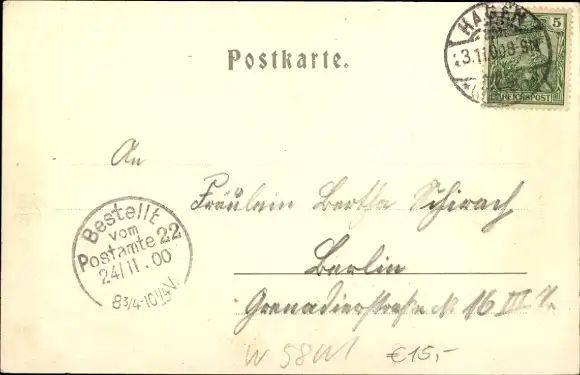 Postkarte.
HAGEN
5
REICHSPOST
An
Fräulein Bertha Schirach
Berlin
Grenadierstraße № 16 III
Bestellt
vom
Postamte 22
24/11.00
8¾-10¼N.
€15,-